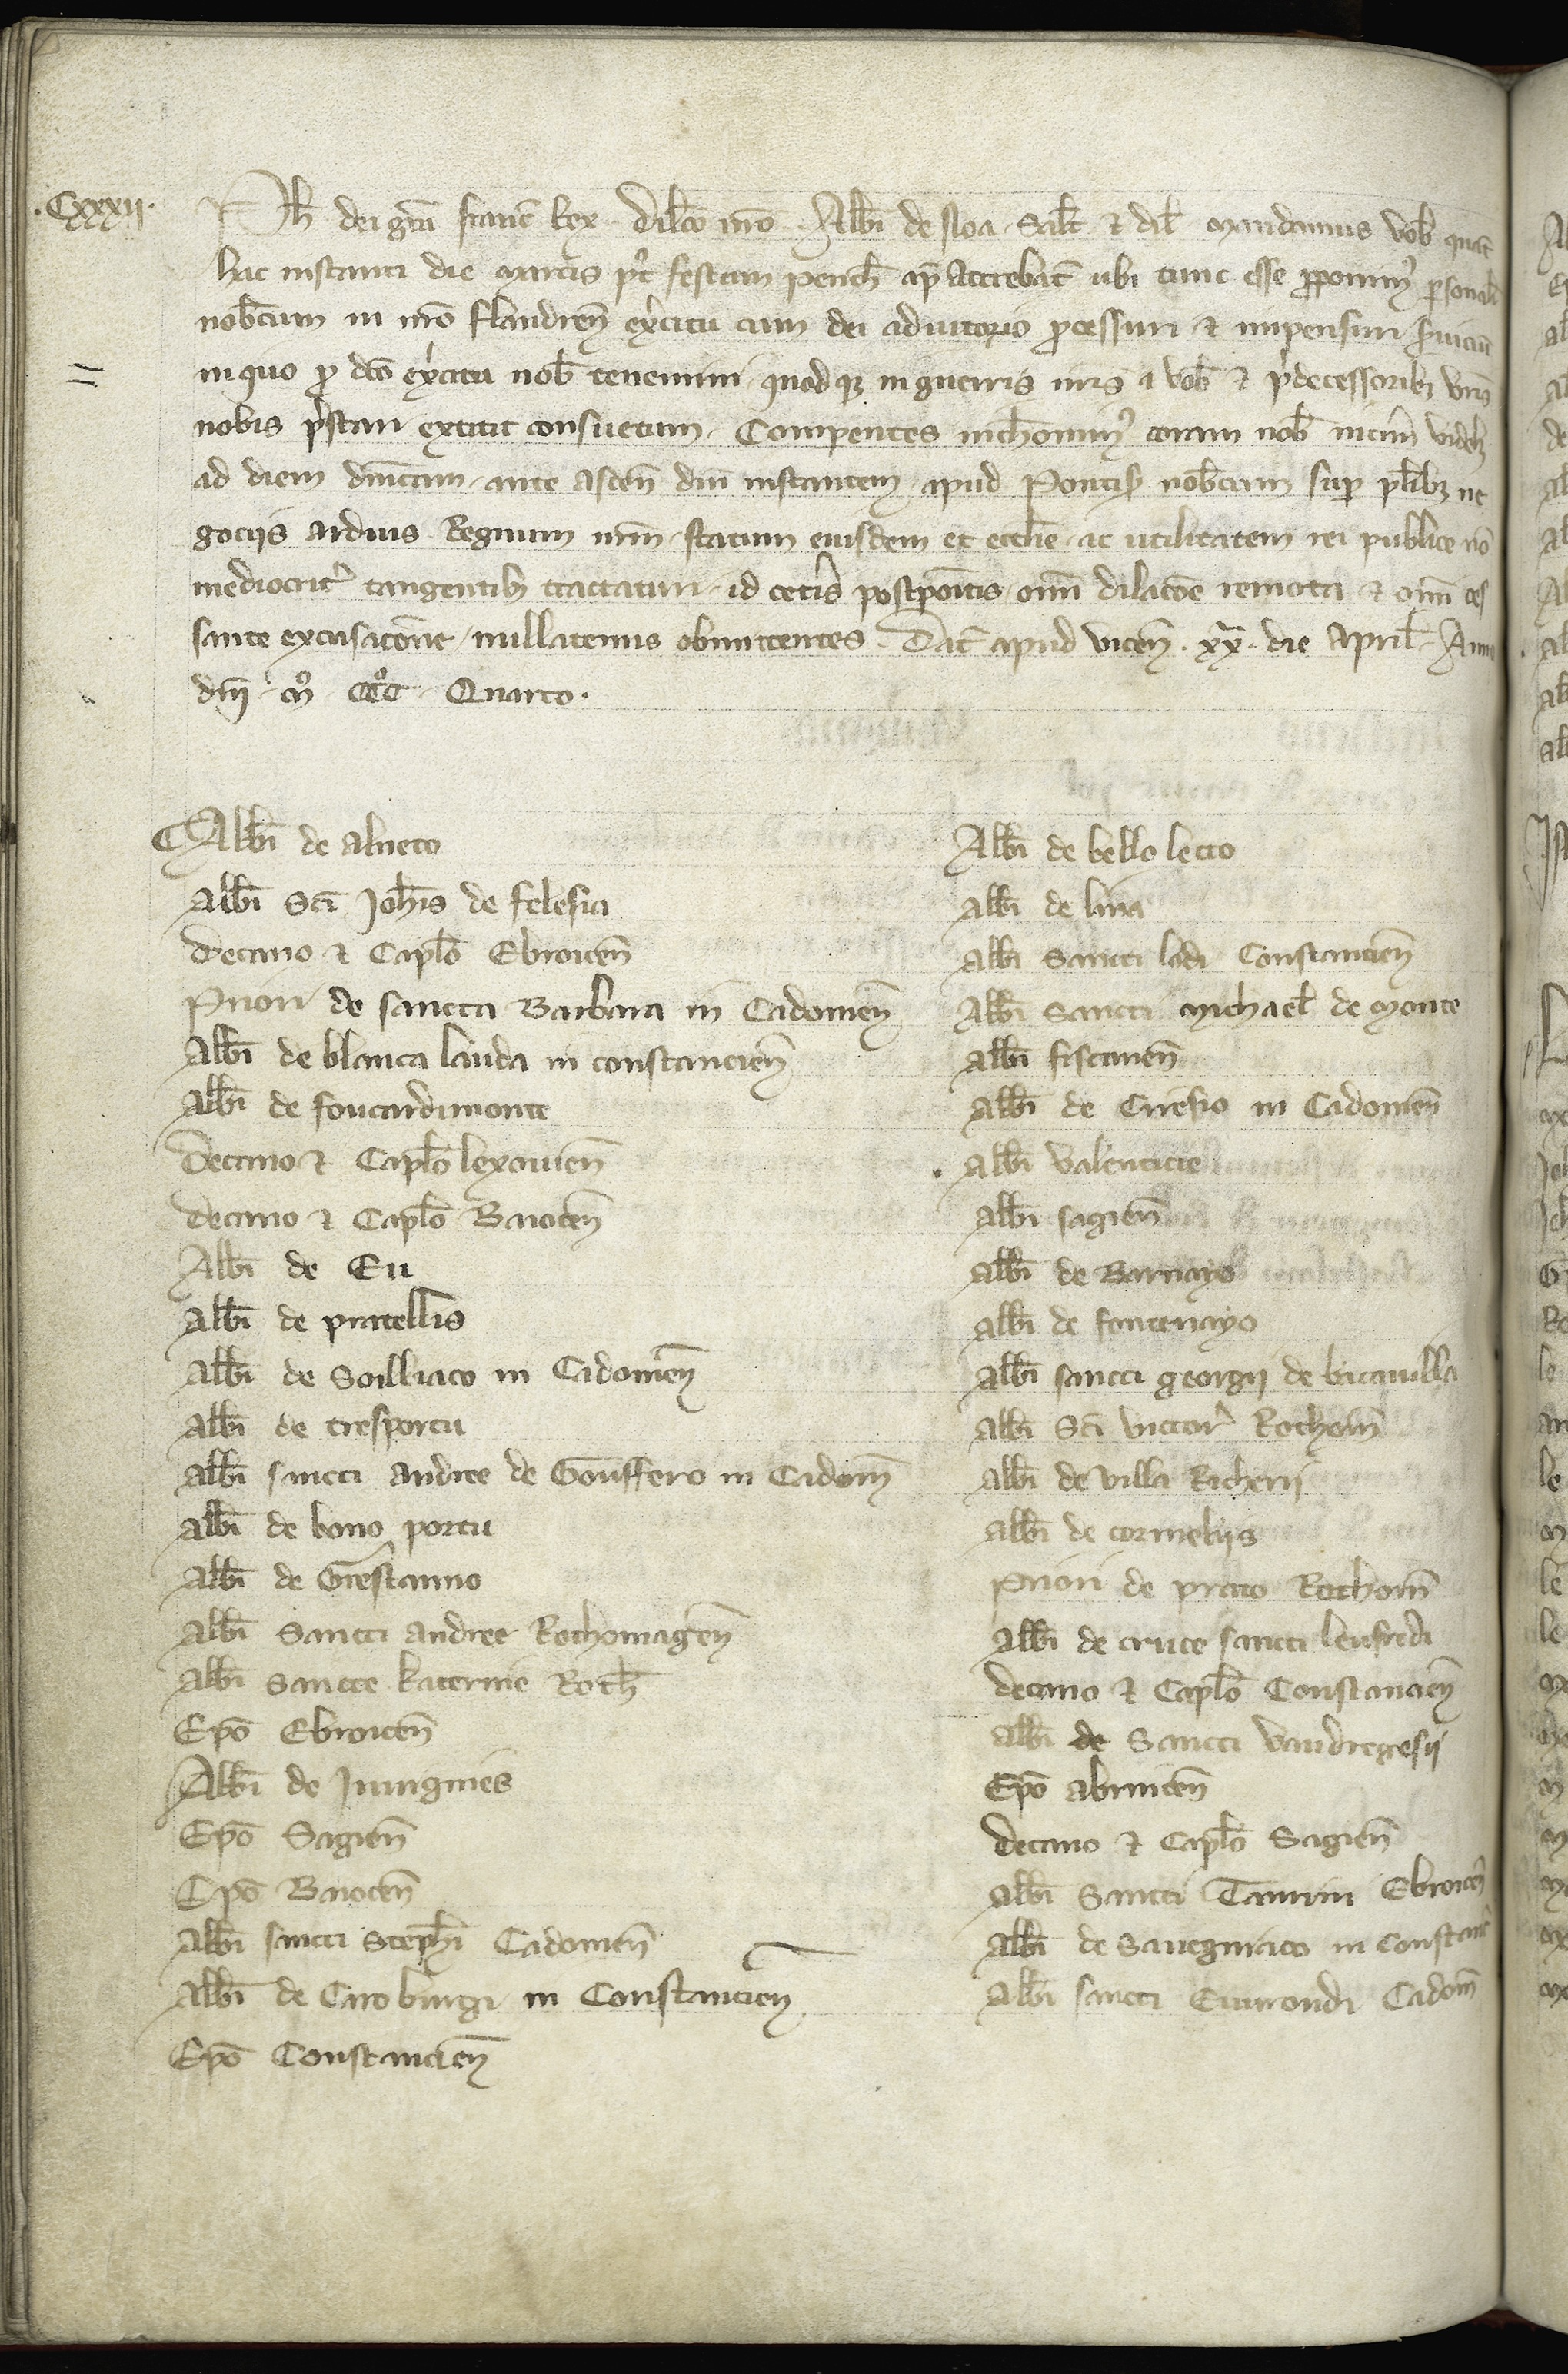 .Cxxxii.
Ph dei gra franc Rex. Dilco nro Abbi de sloa. Salt & dil. mandamus vob quat
hac instanti die martis pt festum penth ap attrebat ubi tunc esse proponimus personalr
nobcum in nro flandren exercitu cum dei adiutorio processuri & impensuri seruiciu
in quo pro dco exercitu nob tenemini. quodque in guerris nris a vob & predecessoribus vris
nobis prestari extitit consuetum. Comparentes nichominus coram nob iterum videlz
ad diem dnicam ante ascen dni instantem apud Pontis. nobcum super plibus ne
gociis arduis Regnum nrm statum eiusdem et ecclie ac utilitatem rei publice no
mediocriter tangentibus tractaturi. id ceteris postpositis omni dilacoe remota & omni ces
sante excusacone. nullatenus obmittentes. Dat apud vicen. xx. die April. Anno
dni. mo ccco Quarto.
Abbi de alneto
abbi Sci Johis de felesia
Decano & Caplo Ebroicen
Priori de sancta Barbara in Cadomen
Abbi de blanca landa in constancien
Abbi de foucardimonte
Decano & Caplo lexouien
Decano & Caplo Baiocen
Abbi de Eu
abbi de pratellis
abbi de Soilliaco in Cadomen
abbi de tresportu
abbi sancti andree de Gouffero in Cadom
abbi de bono portu
abbi de Grestanno
abbi Sancti andree Rothomagen
abbi Sancte katerine Roth
Epo Ebroicen
Abbi de Jumgines
Epo Sagien
Epo Baiocen
abbi sancti Stephi Cadomen
Abbi de Caroburgi in Constancien
Epo Constancien
Abbi de bello lecco
abbi de lira
abbi Sancti lodi Constancien
Abbi Sancti michael de monte
abbi fiscanen
abbi de Ciresio in Cadomen
abbi valencicie
abbi sagien
abbi de Barnayo
abbi de fontenayo
abbi sancti georgii de bucauilla
abbi Sci victor Rothom
abbi de villa Richerii
abbi de cormeliis
Priori de prato Rothom
Abbi de cruce sancti leufredi
decano & Caplo Constancien
abbi de Sancti Vandregesii
Epo abrincen
Decano & Caplo Sagien
Abbi Sancti Taurini Ebroicen
Abbi de Sauegniaco in Constanc
Abbi sancti Eurondi Cadom